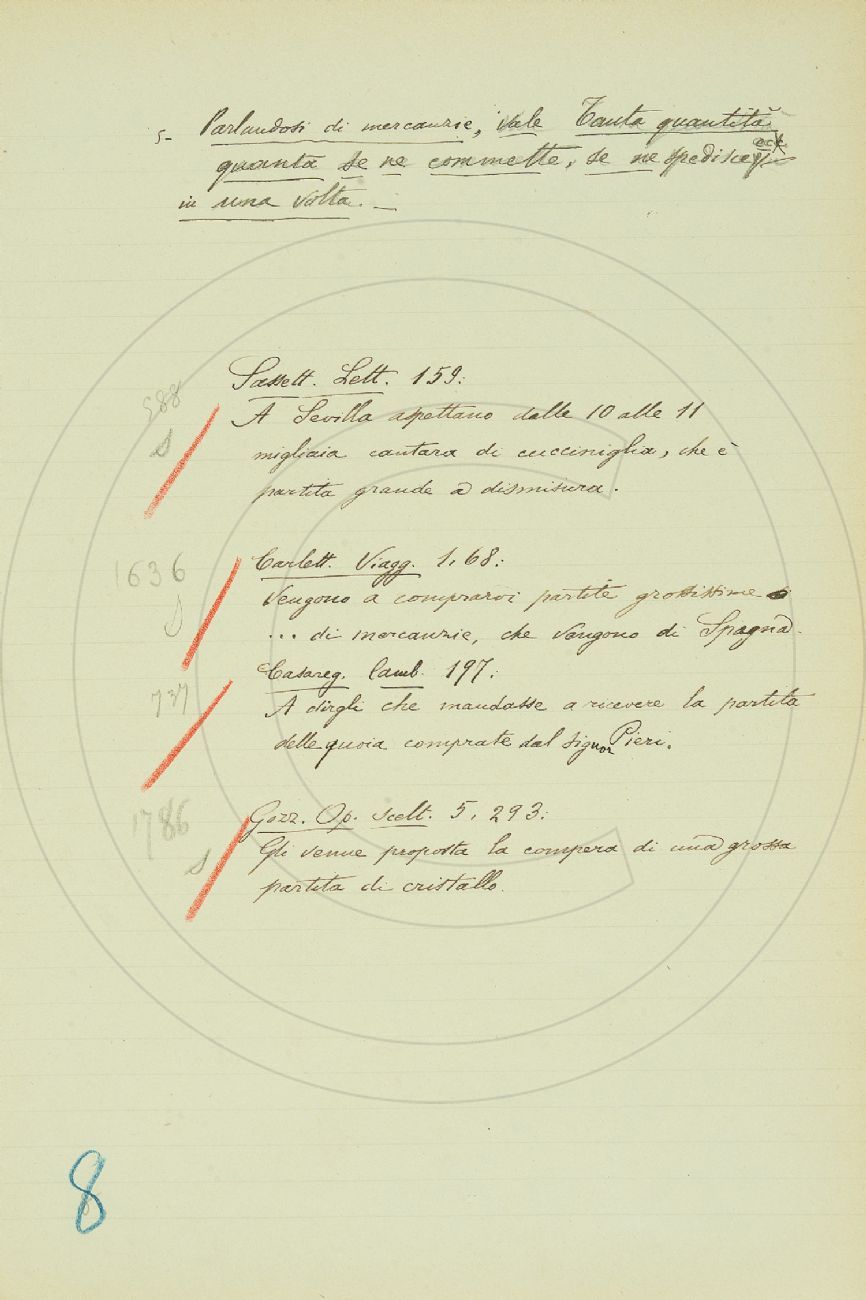 5- Parlandosi di mercanzie, vale Tanta quantità
quanta se ne commette, se ne spedisce, ecc.
in una volta. _
Sassett. Lett. 159:
588
A Sevilla aspettano dalle 10 alle 11
migliaia cantara di cucciniglia, che è
partita grande a dismisura.
Carlett. Viagg. 1, 68:
1636
Vengono a comprarvi partite grossissime
... di mercanzie, che vengono di Spagna.
Casareg. Camb. 197:
737
A dirgli che mandasse a ricevere la partita
delle quoia comprate dal signor Pieri.
Gozz. Op. scelt. 5, 293:
1786
Gli venne proposta la compera di una grossa
partita di cristallo.
8